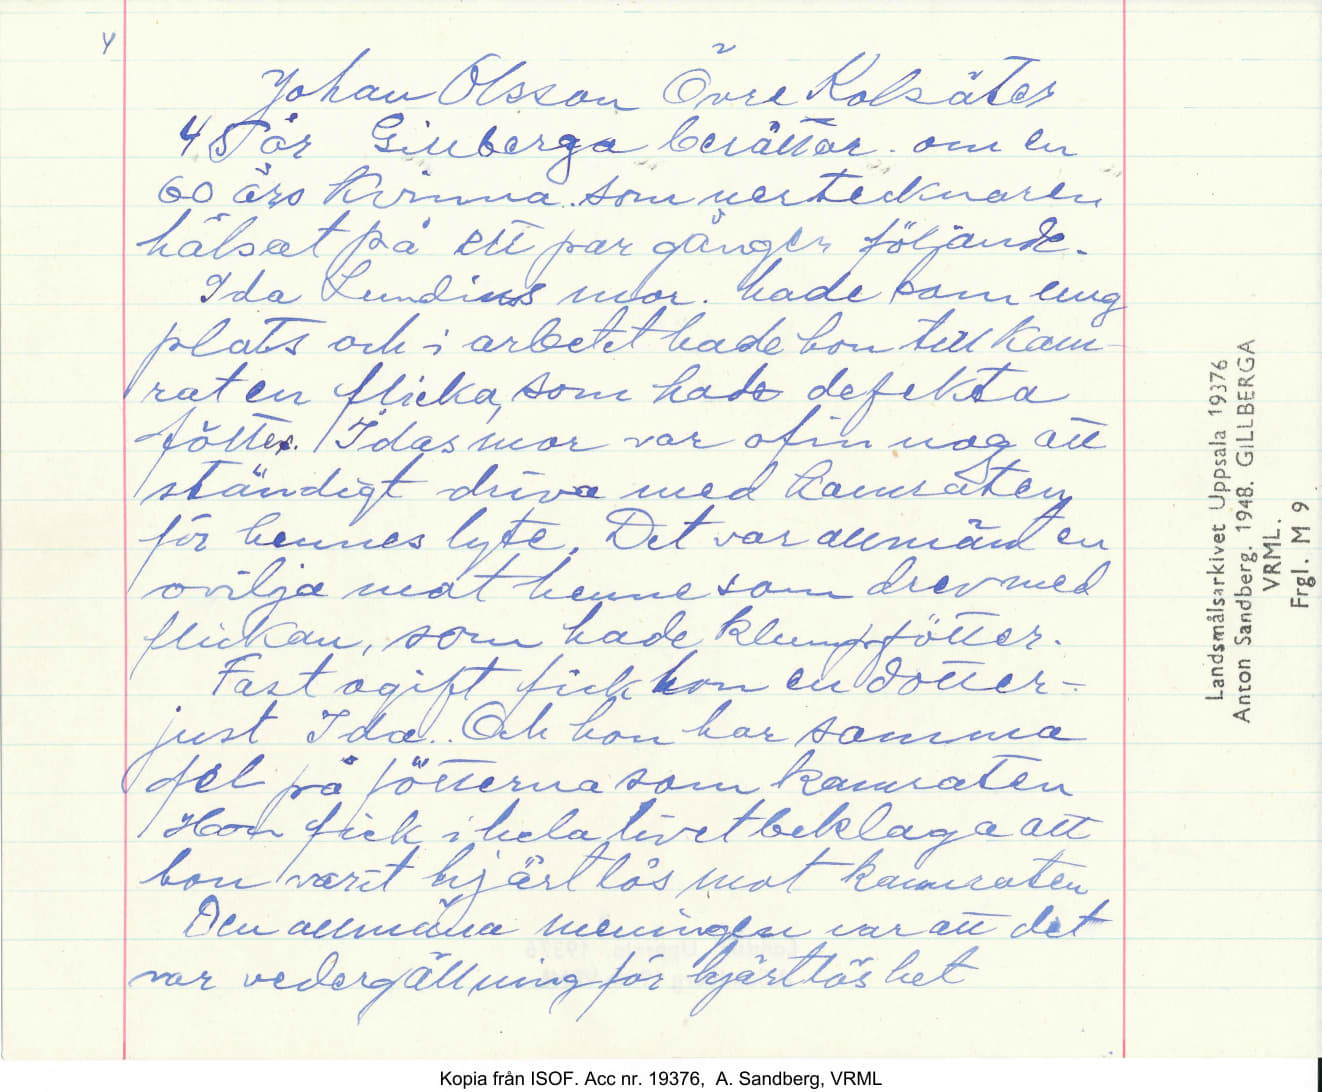 4
Johan Olsson Övre Kolsäter
45 år Gillberga berättar. om en
60 års kvinna. som uertecknaren
hälsat på ett par gånger följande.
Ida Lundins mor. hade som ung
plats och i arbetet hade hon till kam-
rat en flicka, som hade defekta
fötter. Idas mor var ofin nog att
ständigt driva med kamraten
för hennes lyte. Det var allmänt en
ovilja mot henne som drev med
flickan, som hade klumpfötter.
Fast ogift fick hon en dotter-
just Ida.. Och hon har samma
fel på fötterna som kamraten
Hon fick i hela livet beklaga att
hon varit hjärtlös mot kamraten
Den allmäna meningen var att det
var vedergällning för hjärtlöshet
Landsmålsarkivet Uppsala 19376
Anton Sandberg. 1948. GILLBERGA
VRML.
Frgl. M 9
Kopia från ISOF. Acc nr. 19376, A. Sandberg, VRML